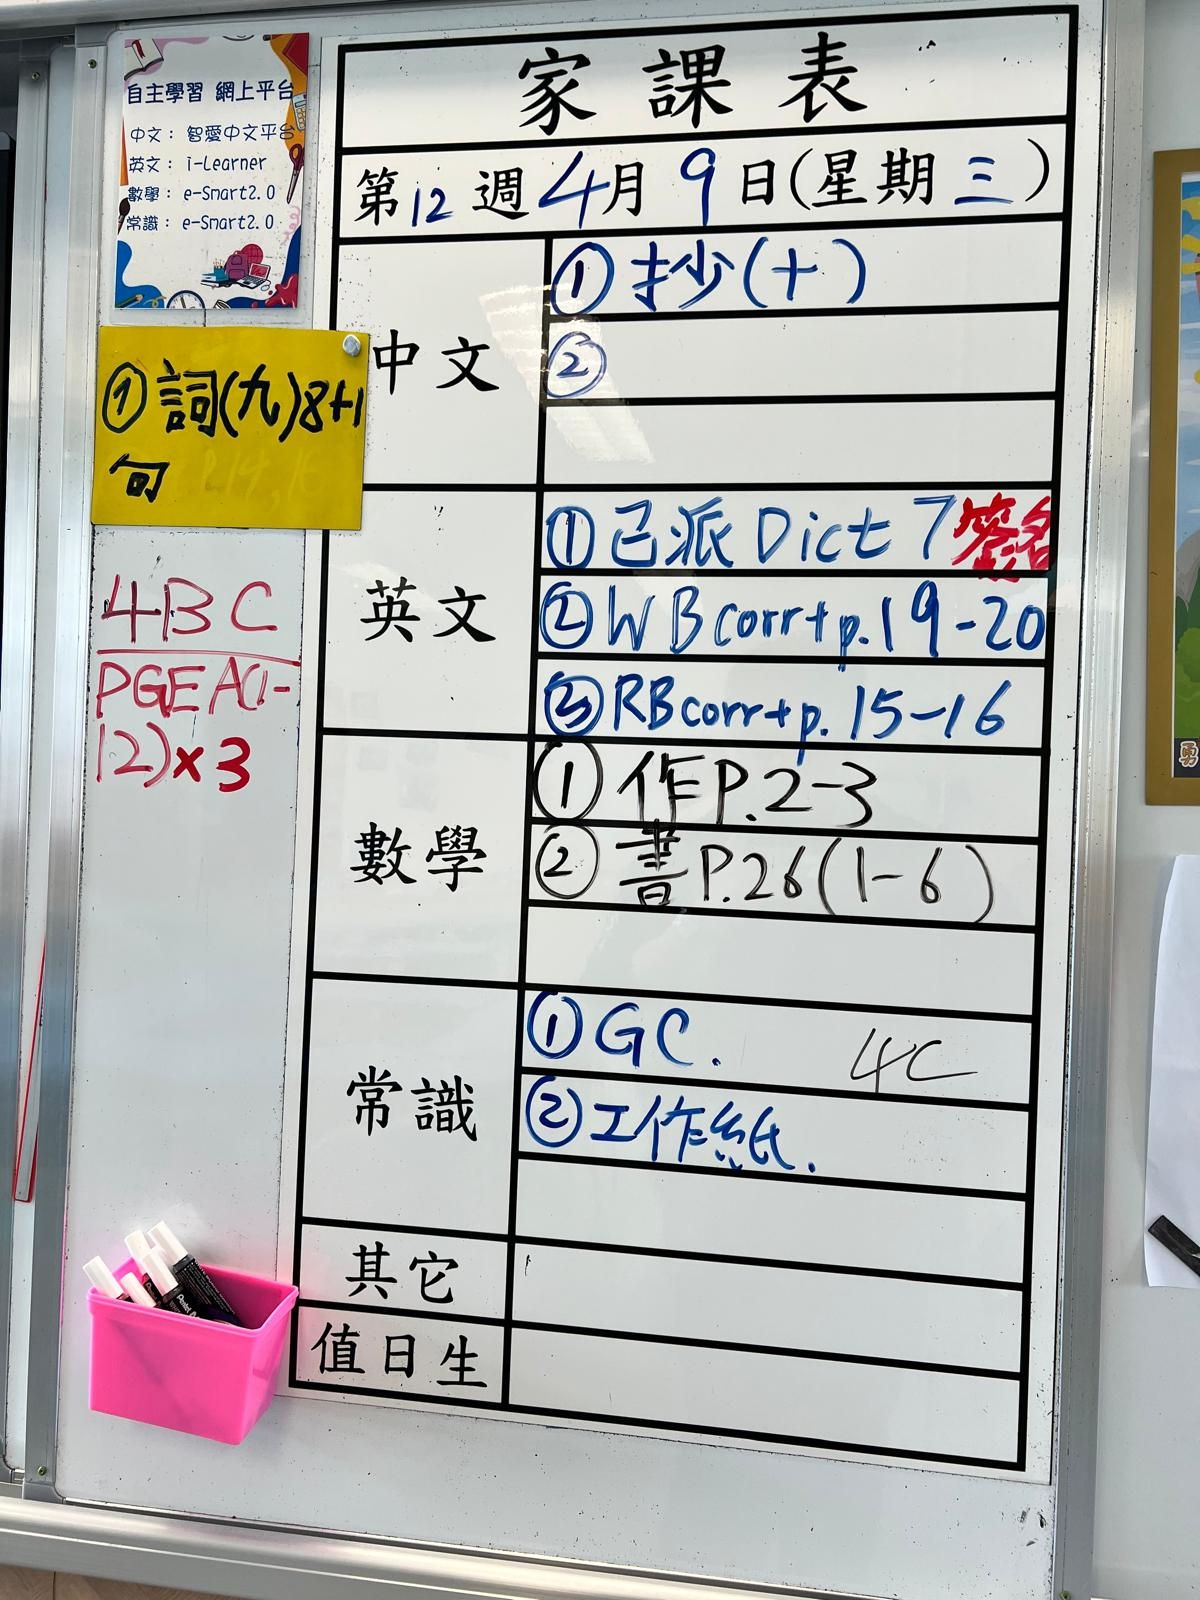 自主學習 網上平台
中文： 智愛中文平台
英文： i-Learner
數學： e-Smart2.0
常識： e-Smart2.0
① 詞(九)8+1
句
P.14,16
4BC
PGE A(1-
12)×3
家課表
第12週4月9日(星期三)
中文
① 抄(十)
②
英文
① 已派 Dict 7 簽名
② WB corr+p.19-20
③ RB corr+p. 15-16
數學
① 作P.2-3
② 書P.26(1-6)
常識
① GC. 4C
② 工作紙.
其它
值日生
勇